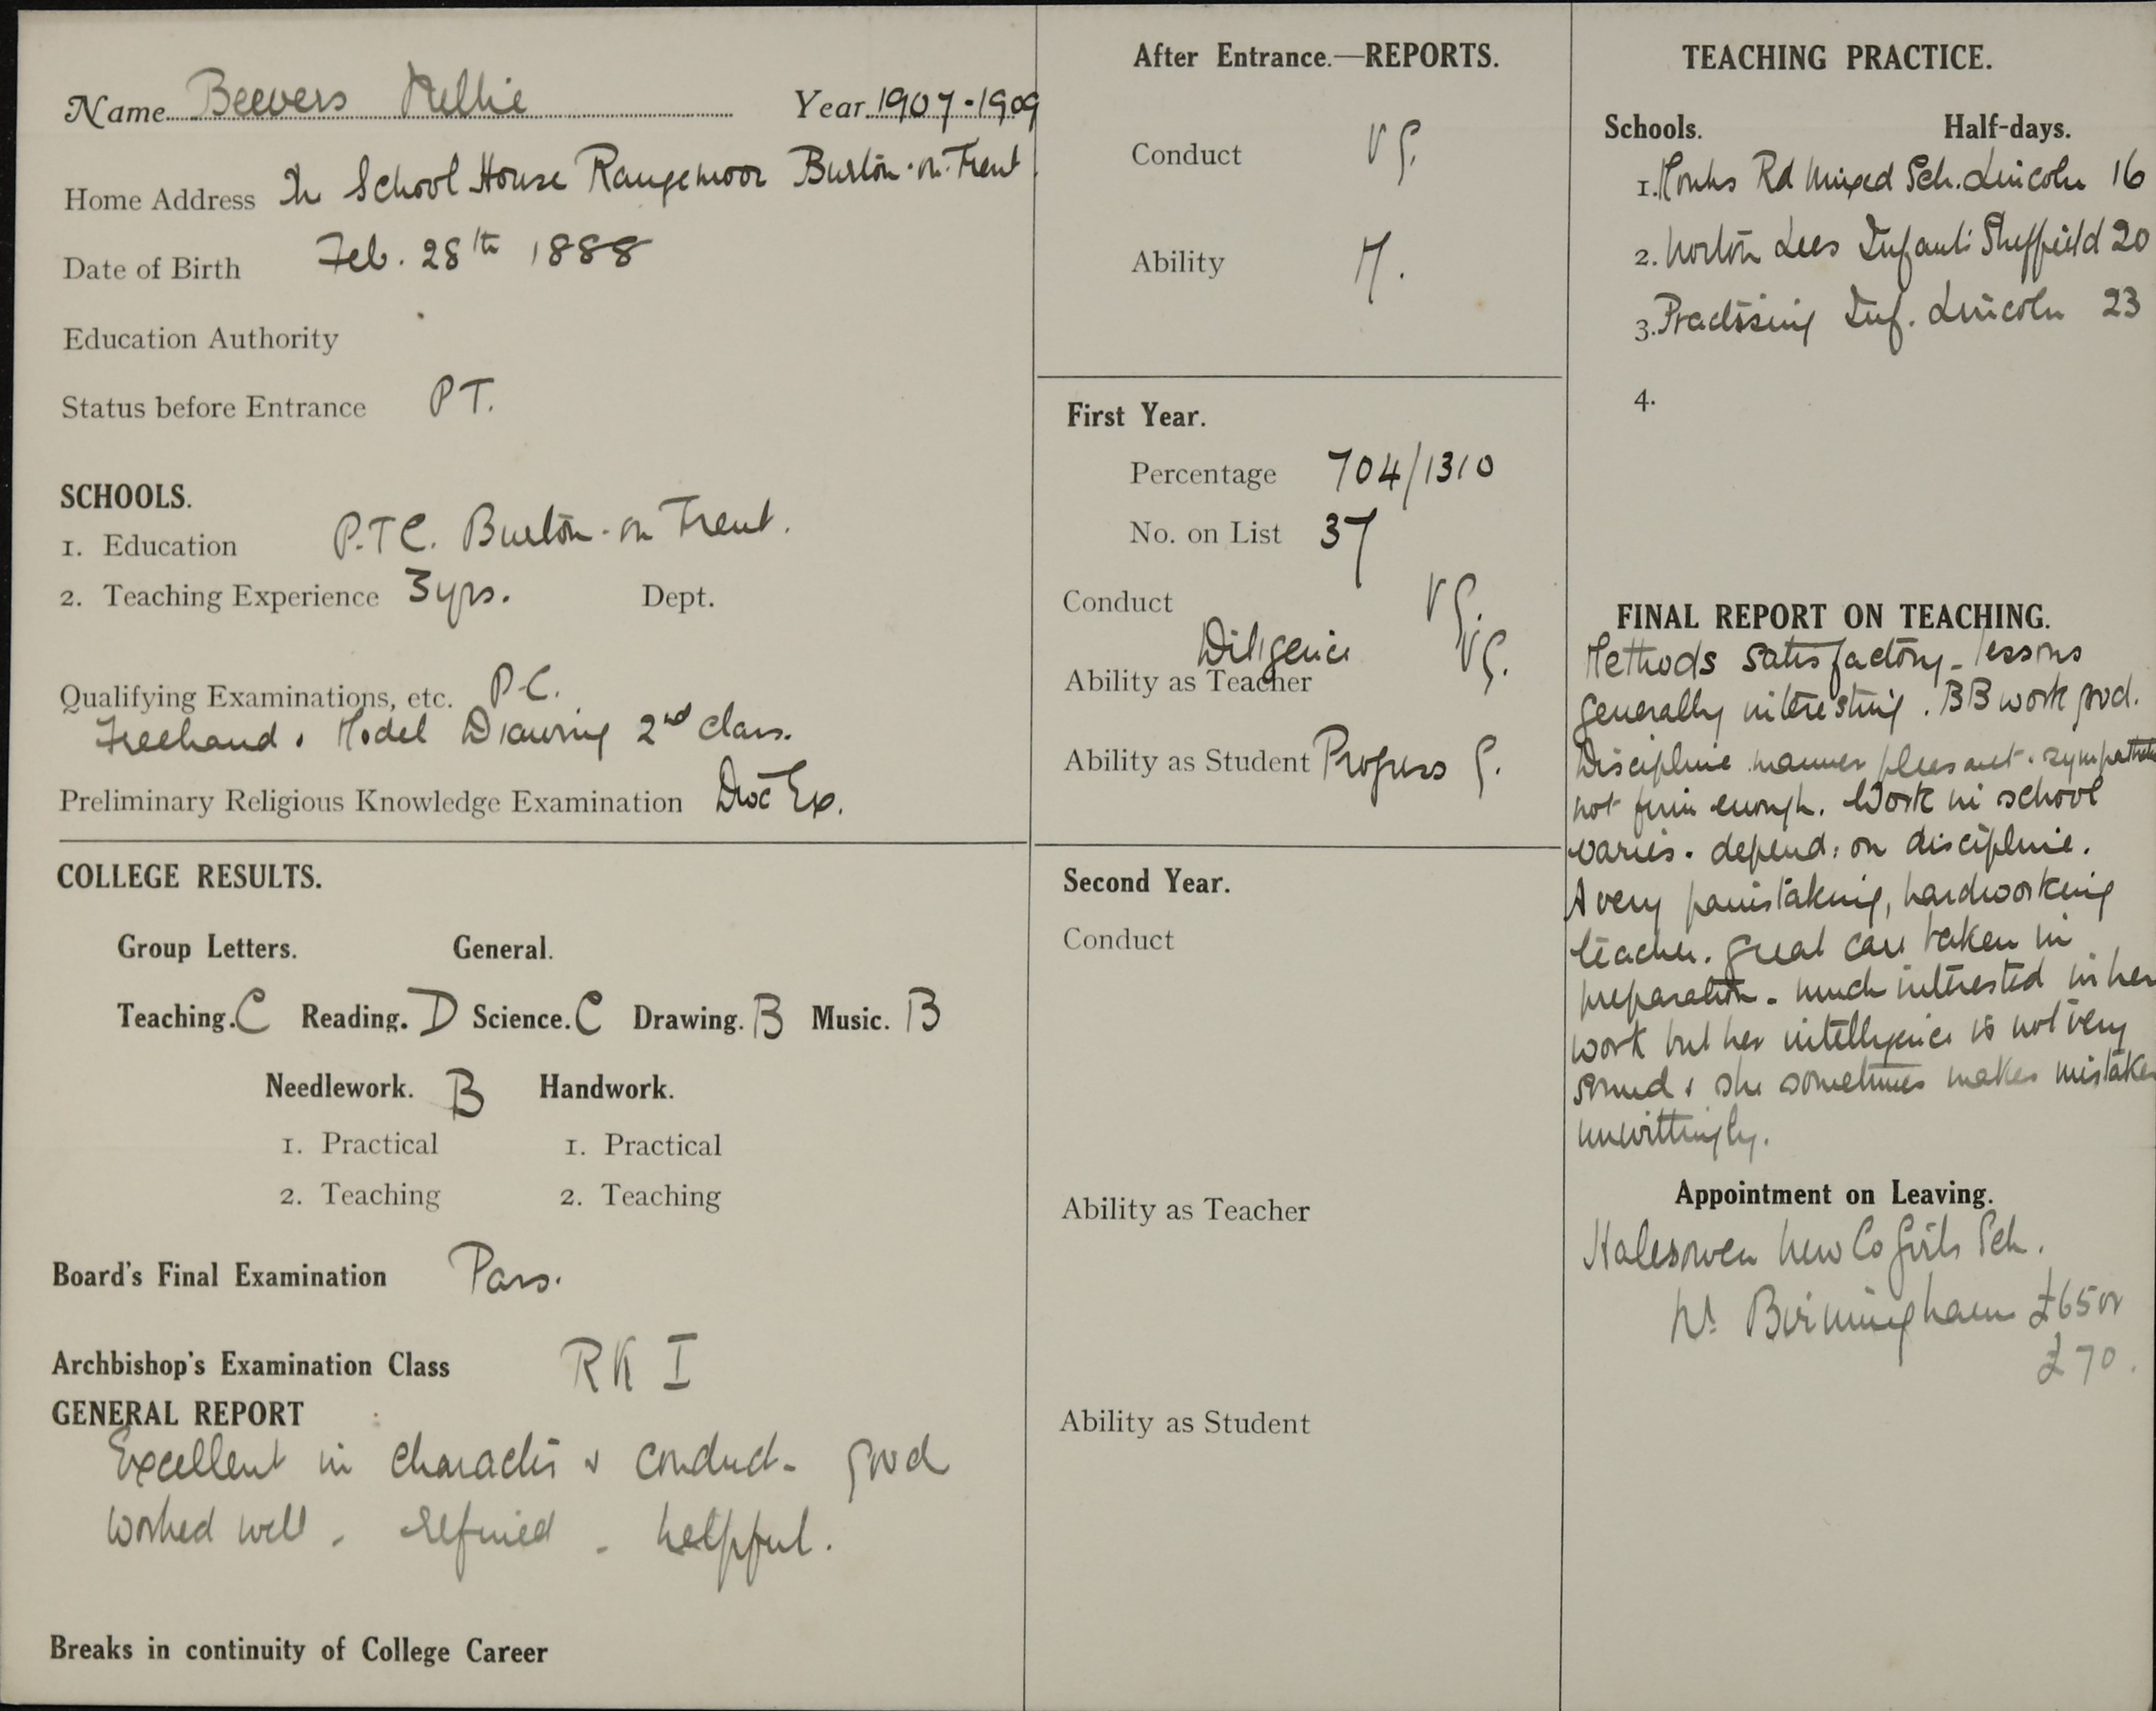 Name Beevers Nellie Year 1907-1909
Home Address The School House Rangemoor Burton-on-Trent
Date of Birth Feb. 28th 1888
Education Authority
Status before Entrance P.T.
SCHOOLS.
1. Education P.T.C. Burton-on Trent.
2. Teaching Experience 3 yrs. Dept.
Qualifying Examinations, etc. P.C.
Freehand & Model Drawing 2nd class.
Preliminary Religious Knowledge Examination Dioc Ex.
COLLEGE RESULTS.
Group Letters. General.
Teaching. C Reading. D Science. C Drawing. B Music. B
Needlework. B Handwork.
1. Practical 1. Practical
2. Teaching 2. Teaching
Board's Final Examination Pass.
Archbishop's Examination Class RK I
GENERAL REPORT
Excellent in character & conduct - good
worked well - refined - helpful.
Breaks in continuity of College Career
After Entrance.—REPORTS.
Conduct VG.
Ability M.
First Year.
Percentage 704/1310
No. on List 37
Conduct VG.
Diligence VG.
Ability as Teacher
Ability as Student Progress G.
Second Year.
Conduct
Ability as Teacher
Ability as Student
TEACHING PRACTICE.
Schools. Half-days.
1. Monks Rd Mixed Sch. Lincoln 16
2. Norton Lees Infants Sheffield 20
3. Practising Inf. Lincoln 23
4.
FINAL REPORT ON TEACHING.
Methods satisfactory - lessons
generally interesting. BB work good.
Discipline manner pleasant - sympathetic
not firm enough. Work in school
varies - depend: on discipline.
A very painstaking, hardworking
teacher. great care taken in
preparation - much interested in her
work but her intelligence is not very
sound & she sometimes makes mistakes
unwittingly.
Appointment on Leaving.
Halesowen New Co Girls Sch.
Nr Birmingham £65 or
£70.